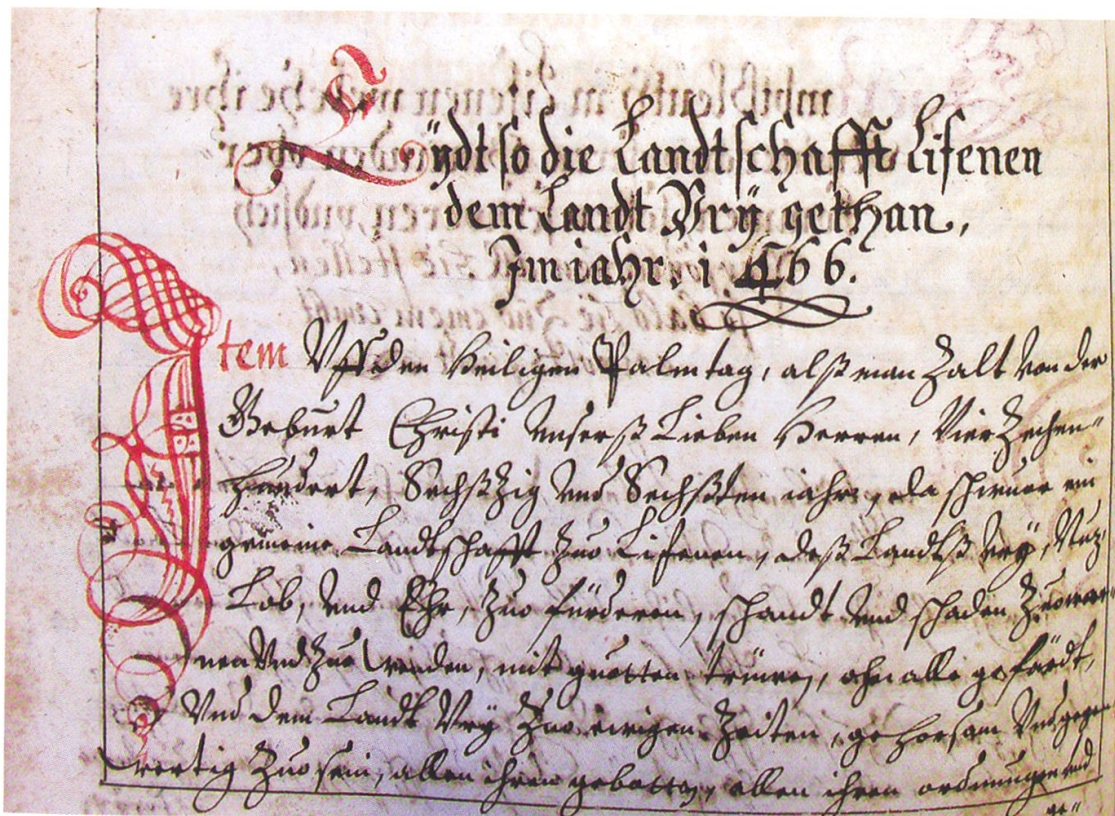 Eÿdt so die Landtschafft Lifenen
dem Landt Vrÿ gethan,
Im iahr. i 466.
Item Vff den Heiligen Palmtag, alß man Zalt von der
Geburt Christi unserß Lieben Herren, VierZechen-
hundert, SechßZig und Sechßten iahr, da schwuor ein
gemeine Landtschafft Zuo Lifenen, deß Landtß Vrÿ, Nuz,
Lob, und Ehr, Zuo fürderen, schandt und schaden Zuowar-
nen Vnd Zuo wenden, mit guotten trüwen, ohn alle gefärdt,
Vnd dem Landt Vrÿ Zuo ewigen Zeiten, gehorsam Vnd gegen
wertig Zuo sein, allen ihren gebotten, allen ihren ordnungen und
ge-